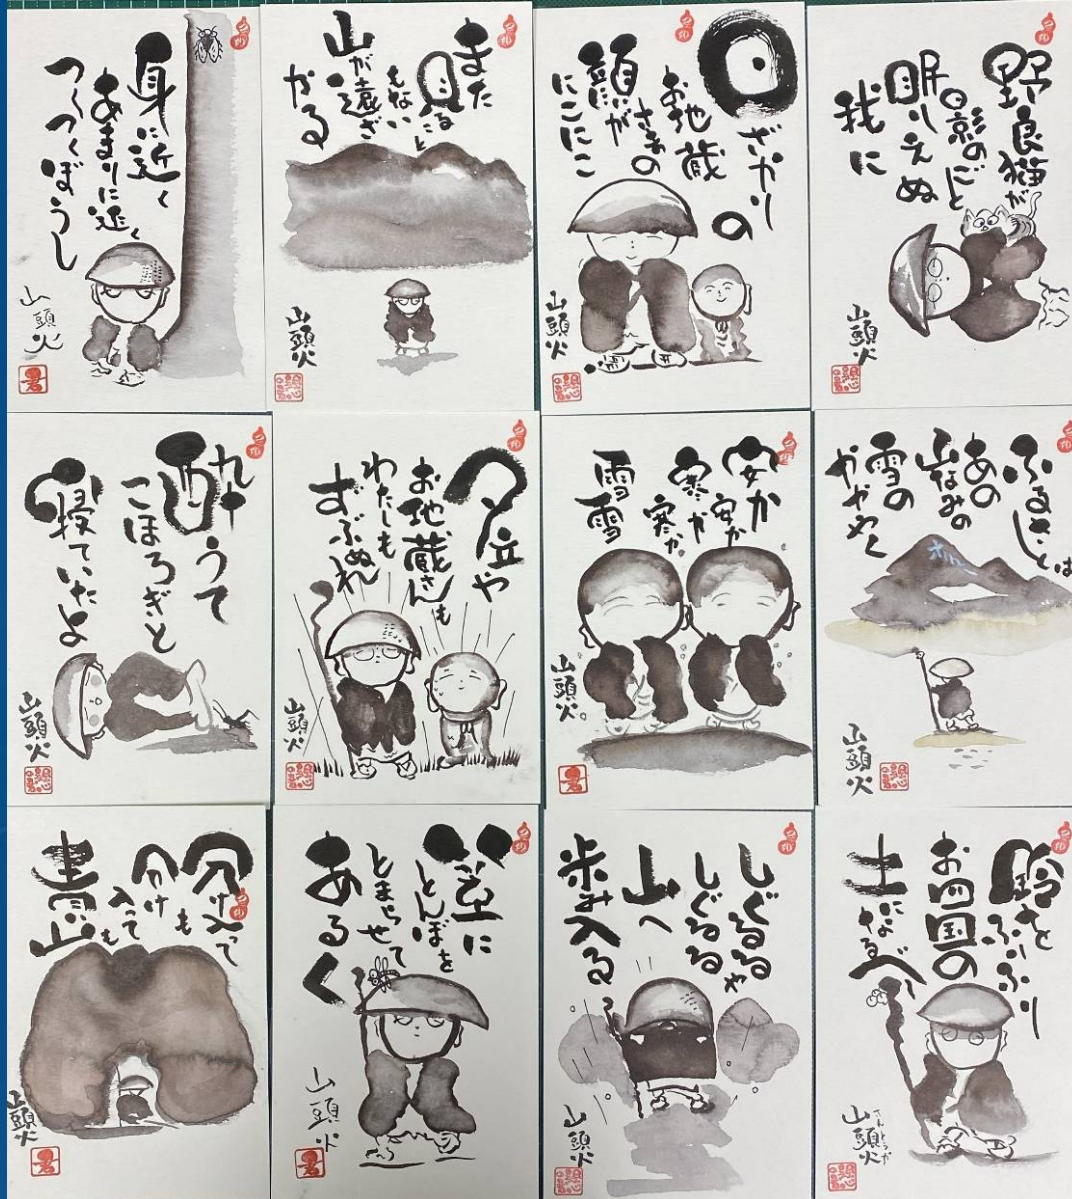 身に近く
あまりに近く
つくつくぼうし
山頭火
また
見ること
もない
山が遠ざ
かる
山頭火
日ざかりの
お地蔵
さまの
顔が
にこにこ
山頭火
野良猫が
影のごと
眠りえぬ
我に
山頭火
酔うて
こほろぎと
寝ていたよ
山頭火
夕立や
お地蔵さんも
わたしも
ずぶぬれ
山頭火
安か
安か
寒か
寒か
雪雪
山頭火
ふるさとは
あの
山なみの
雪の
かがやく
山頭火
分け入って
も
分け
入って
も
青い
山
山頭火
笠に
とんぼを
とまらせて
あるく
山頭火
しぐるるや
しぐるる
山へ
歩み入る
山頭火
鈴を
ふりふり
お四国の
土になるべく
さんとうか
山頭火